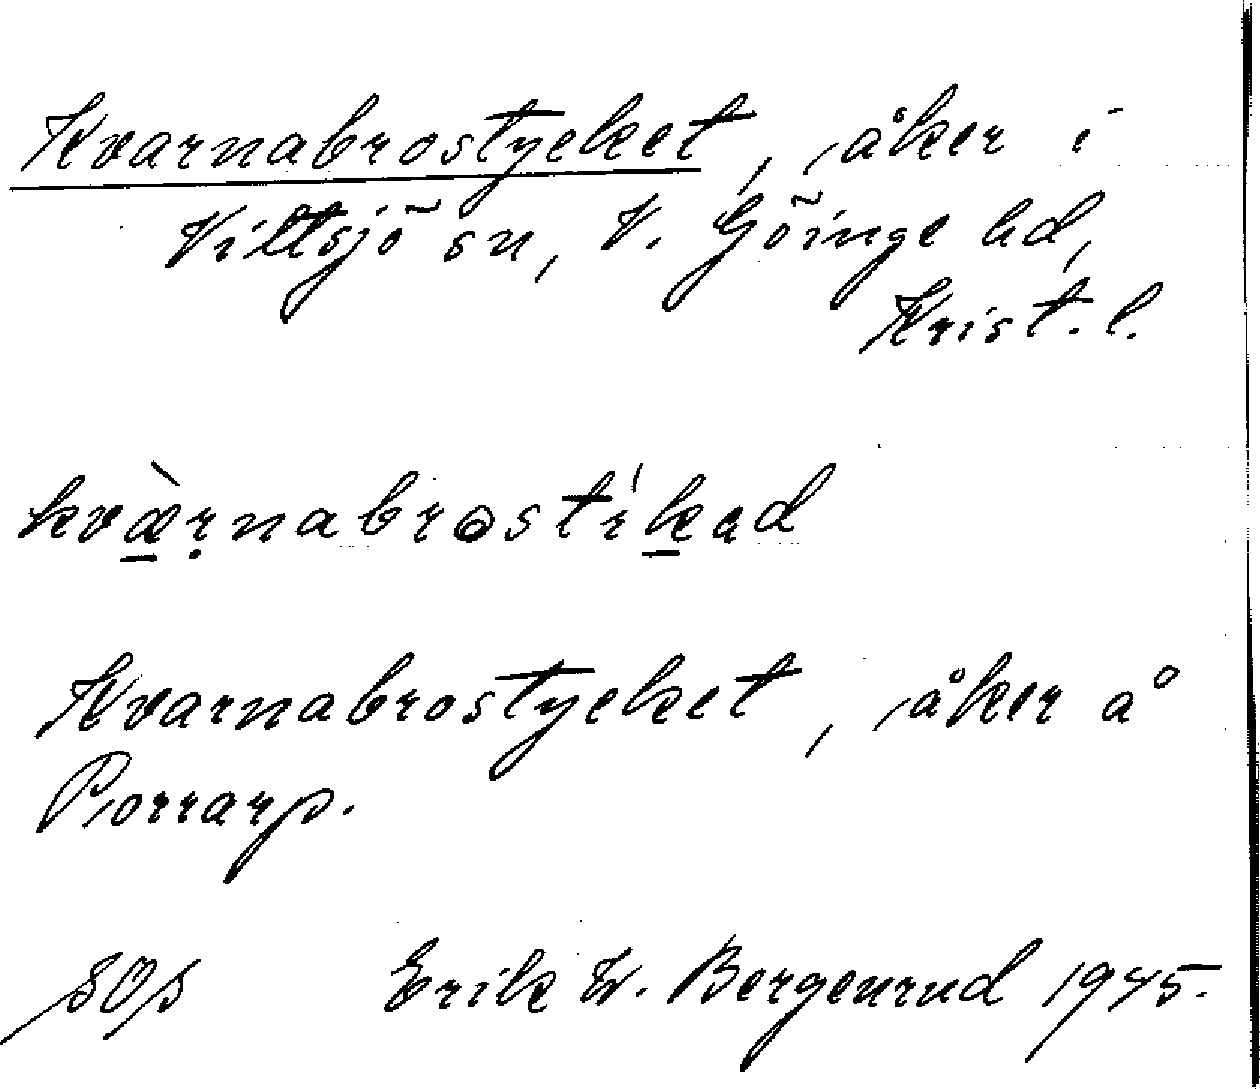 Kvarnabrostycket, åker i
Vittsjö sn, V. Göinge hd,
Krist. l.
kvæ̀rnabrostikad
Kvarnabrostycket, åker å
Porrarp.
Erik W. Bergenrud 1945.